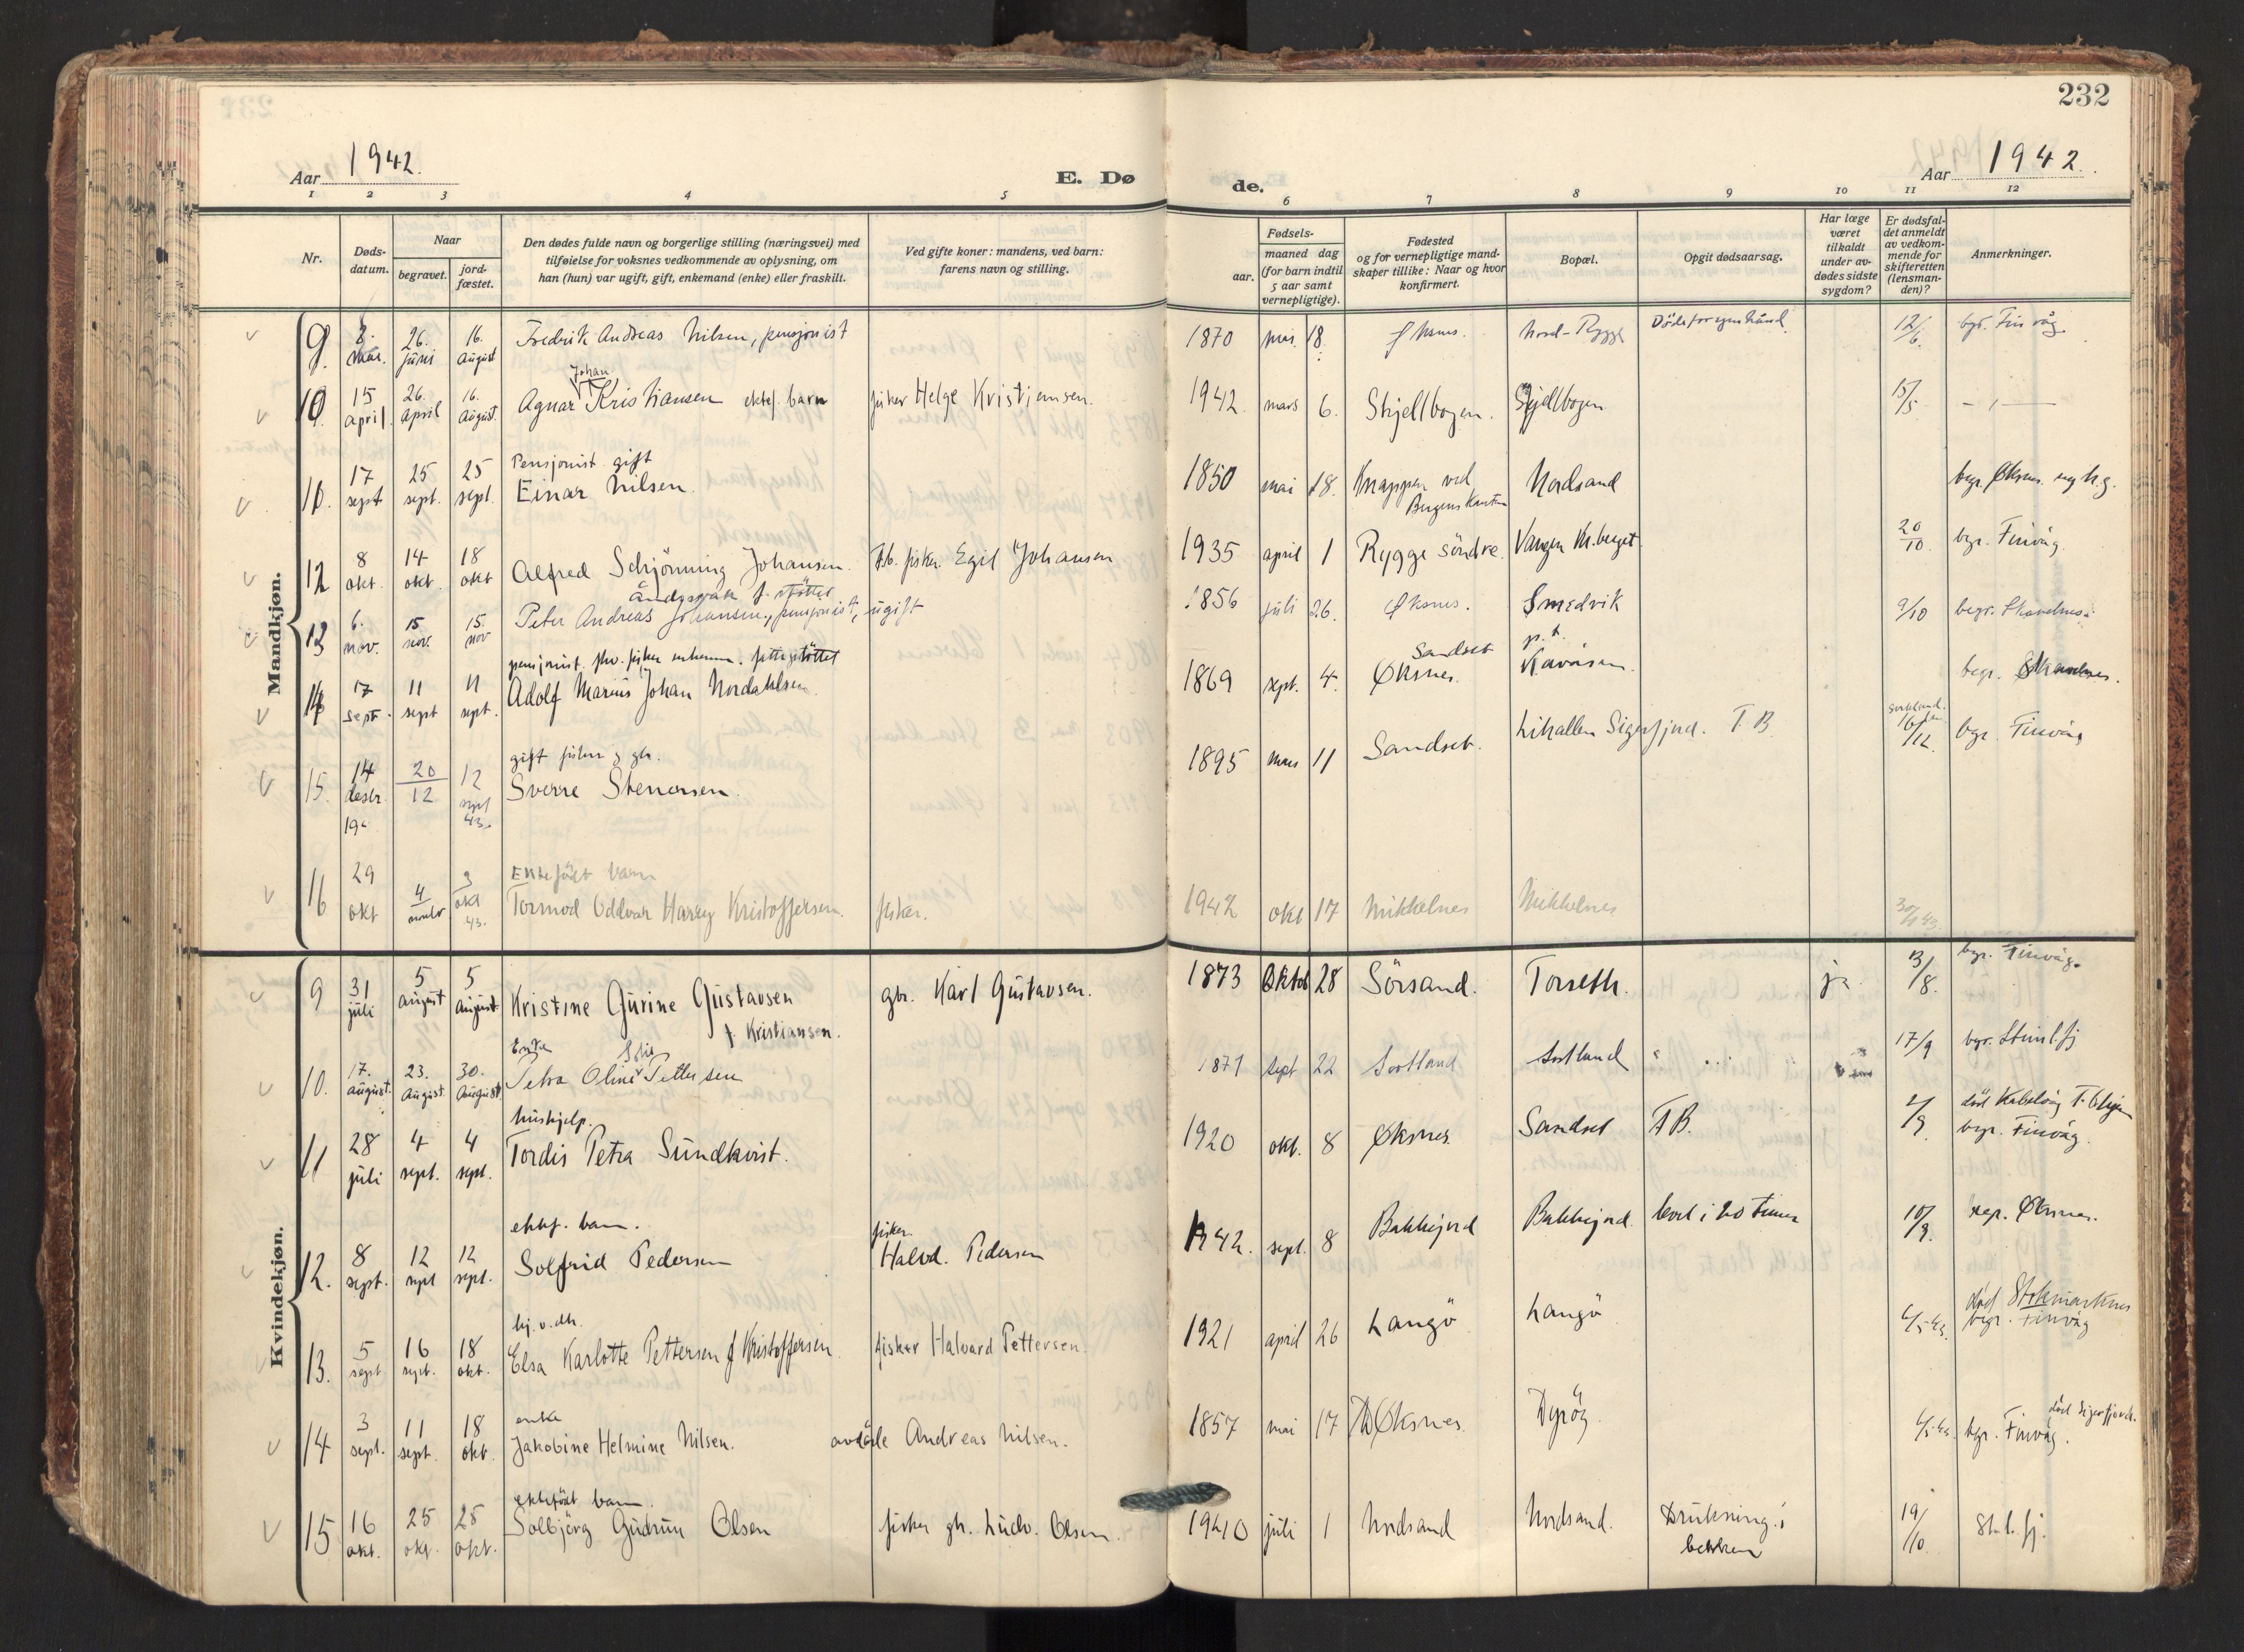 232
Aar 1942.
E. Dø
de.
Aar 1942.
1 2 3 4 5 6 7 8 9 10 11 12
Nr.
Døds-
datum.
Naar
begravet.
jord-
fæstet.
Den dødes fulde navn og borgerlige stilling (næringsvei) med
tilføielse for voksnes vedkommende av oplysning, om
han (hun) var ugift, gift, enkemand (enke) eller fraskilt.
Ved gifte koner: mandens, ved barn:
farens navn og stilling.
Fødsels-
aar.
maaned dag
(for barn indtil
5 aar samt
vernepligtige).
Fødested
og for vernepligtige mand-
skaper tillike: Naar og hvor
konfirmert.
Bopæl.
Opgit dødsaarsag.
Har læge
været
tilkaldt
under av-
dødes sidste
sygdom?
Er dødsfal-
det anmeldt
av vedkom-
mende for
skifteretten
(lensman-
den)?
Anmerkninger.
Mandkjøn.
9. 8. mai. 26. juni 16. august Fredrik Andreas Nilsen, pensjonist 1870 mai 18. Øksnes. Nord-Rygge Døde for egen hånd 12/6. bgr. Finvåg
10. 15 april 26. april 16. august Agnar Johan Kristiansen ektef. barn fisker Helge Kristiansen. 1942. mars 6. Skjellbogen. Skjellbogen 15/5 — " —
Pensjonist gift
17 sept 25 sept. 25 sept. Einar Nilsen. 1850 mai 18. Knappen ved Nordsand begr. Øksnes
12 8 okt. 14 okt. 18 okt Alfred Schjönning Johansen. fisker Egil Johansen 1935 april 1 Rygge söndre. Vangen 20/10. bgr. Finvåg.
13 6. nov. 15 nov. 15. nov Peter Andreas Johansen, pensjonist, ugift 1856 juli 26. Øksnes. Smedvik 9/10 begr. Skavelnes.
pensjonist
14 17 sept. 11 sept 11 sept. Adolf Marius Johan Nordahlsen. 1869 sept. 4. Sandset Øksnes. p.t. Kavåsen. begr.
gift fisker
15. 14 desbr. 20/12 12 sept 43. Sverre Stenersen. 1895 mars 11 Sandset. Sigerfjord. T.B. 16/12. bgr. Finvåg
Ektefödt barn
16 29 okt 4 3 okt 43. Tormod Oddvar Harry Kristoffersen. fisker. 1942 okt 17 Nikkelnes Nikkelnes
Kvindekjøn.
9 31 juli 5 august 5 august Kristine Gurine Gustavsen gbr. Karl Gustavsen. 1873 Oktob 28 Sörsand. Torseth. ja 13/8. bgr. Finvåg.
f. Kristiansen.
Enke
10. 17. august. 23. August 30. August. Petra Oline Pettersen 1871 sept 22 Sortland Sortland 17/9
hushjelp.
11 28 juli 4 sept. 4 sept. Tordis Petra Sundkvist. 1920 okt. 8 Øksnes Sandset T.B. bgr. Finvåg.
ektef. barn.
12. 8 sept. 12 sept 12 sept. Solfrid Pedersen fisker. Halvd. Pedersen 1942. sept. 8 Bakkejord Bakkejord. levet i 20 timer 10/9. Øksnes.
13. 5 sept 16 sept. 18 okt. Elsa Karlotte Pettersen f Kristoffersen fisker Halvard Pettersen. 1921 april 26 Langö Langö död Stokmarknes bgr. Finvåg
enke
14 3 sept. 11 sept. 18 okt. Jakobine Helmine Nilsen. avdöde Andreas Nilsen. 1857 mai 17 Øksnes. Dyröy. död Sigerfjord. bgr. Finvåg.
ektefödt barn.
15 16 okt. 25 okt. 25 okt. Solbjörg Gudrun Olsen fisker gb. Ludv. Olsen. 1940 juli 1 Nordsand Nordsand. Drukning i bekken 19/10. St.l.fj.